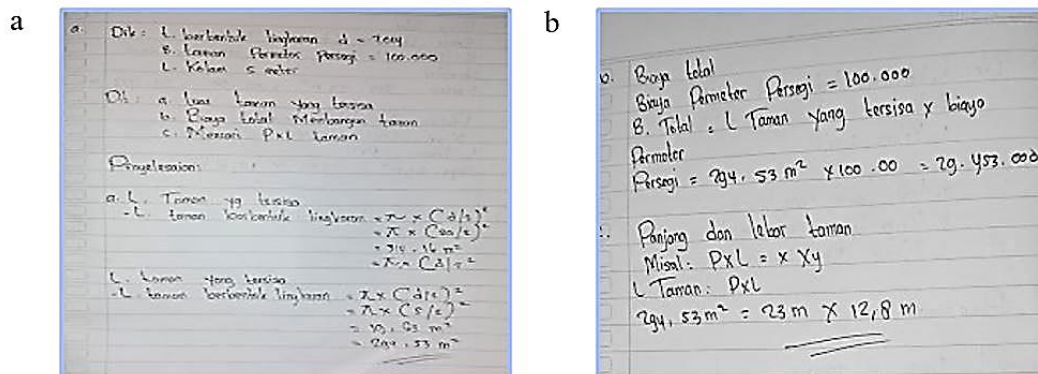 a
a.
Dik : L. berbentuk lingkaran d =
B. taman Permeter persegi = 100.000
L. Kolam 5 meter
Dit : a. Luas taman yang tersisa
b. Biaya total Membangun taman
c. Mencari PxL taman
Penyelesaian:
a. L. Taman yg tersisa
- L. taman berbentuk lingkaran = π × (d/2)²
= π × (20/2)²
= 314.16 m²
= π × (d/2)²
L. taman yang tersisa
- L. taman berbentuk lingkaran = π × (d/2)²
= π × (5/2)²
= 19,63 m²
= 294,53 m²
b
b. Biaya total
Biaya Permeter Persegi = 100.000
B. Total : L Taman yang tersisa x biaya
Permeter
Persegi = 294,53 m² x 100.00 = 29.453.000
c. Panjang dan lebar taman
Misal: PxL = x Xy
L Taman: PxL
294,53 m² = 23 m x 12,8 m